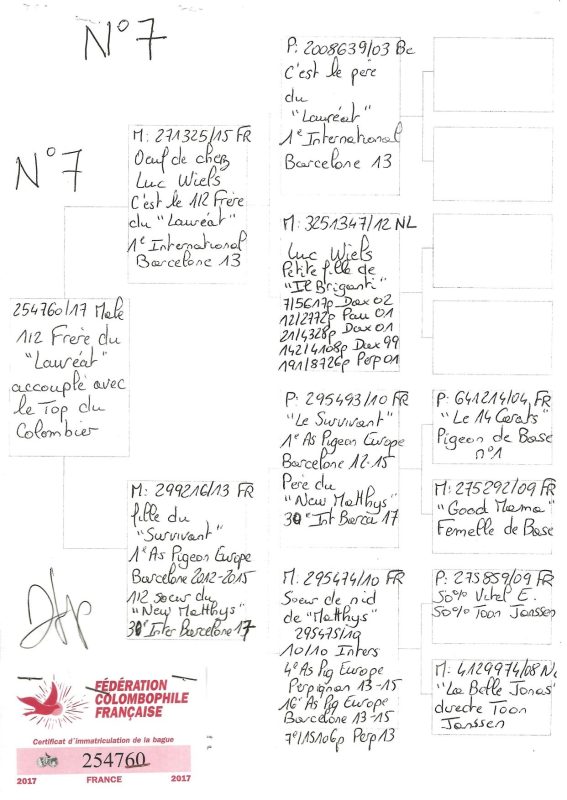 N°7
N°7
254760/17 Male
1/2 Frère du
"Lauréat"
accouplé avec
le Top du
Colombier
M: 271325/15 FR
Oeuf de chez
Luc Wiels
C'est le 1/2 Frère
du "Lauréat"
1e International
Barcelone 13
M: 299216/13 FR
fille du
"Survivant"
1e As Pigeon Europe
Barcelone 2012-2015
1/2 soeur du
"New Matthys"
30e Inter Barcelone 17
P: 2008639/03 Be
C'est le père
du
"Lauréat"
1e International
Barcelone 13
M: 3251347/12 NL
Luc Wiels
Petite fille de
"Il Briganti"
7/5617p Dax 02
12/2772p Pau 01
21/4328p Dax 01
142/4108p Dax 99
191/8726p Perp 01
P: 295493/10 FR
"Le Survivant"
1e As Pigeon Europe
Barcelone 12-15
Père du
"New Matthys"
30e Int Barca 17
M: 295474/10 FR
Soeur de nid
de "Matthys"
295475/19
10/10 Inters
4e As Pig Europe
Perpignan 13-15
16e As Pig Europe
Barcelone 13-15
7e/15106p Perp 13
P: 641214/04 FR
"Le 14 Carats"
Pigeon de Base
n°1
M: 275292/09 FR
"Good Mama"
Femelle de Base
P: 275859/09 FR
50% Vital E.
50% Toon Janssen
M: 4129974/08 NL
"La Belle Jonas"
directe Toon
Janssen
FÉDÉRATION
COLOMBOPHILE
FRANÇAISE
Certificat d'immatriculation de la bague
254760
2017 FRANCE 2017